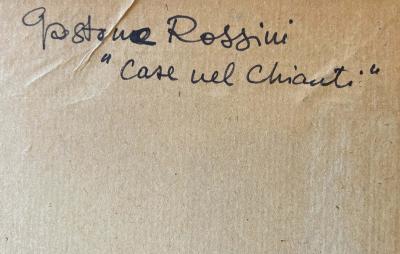 Gastone Rossini
"Case nel Chianti"